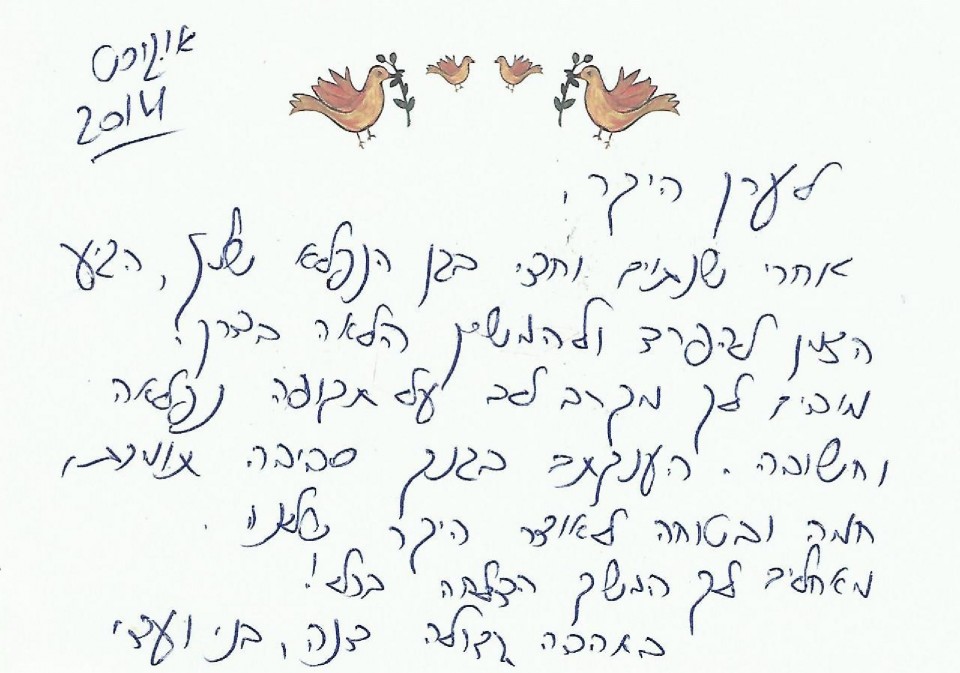 אוגוסט
2014
לערן היקר,
אחרי שנתיים וחצי בגן הנפלא שלך, הגיע
הזמן להפרד ולהמשיך הלאה בדרך.
מודים לך מקרב לב על תקופה נפלאה
וחשובה. הענקתם בגנך סביבה תומכת,
חמה ובטוחה לאוצר היקר שלנו.
מאחלים לך המשך הצלחה בכל!
באהבה גדולה דנה, בני ועדי